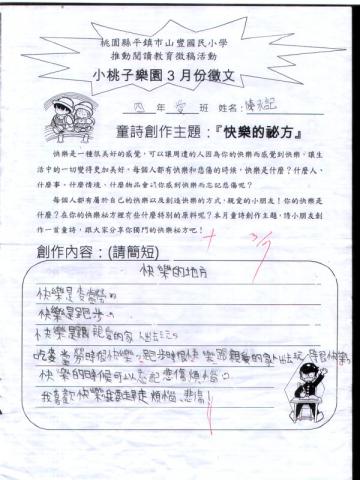 桃園縣平鎮市山豐國民小學
推動閱讀教育徵稿活動
小桃子樂園3月份徵文
四年愛班 姓名:
童詩創作主題:『快樂的祕方』
快樂是一種很美好的感覺,可以讓周遭的人因為你的快樂而感覺到快樂,讓生
活中的一切變得更加美好。每個人都有快樂和悲傷的時候,快樂是什麼?什麼人、
什麼事、什麼情境、什麼物品會讓你感到快樂而忘記悲傷呢?
每個人都有屬於自己的快樂以及創造快樂的方式,親愛的小朋友!你的快樂是
什麼?在你的快樂祕方裡有些什麼特別的原料呢?本月童詩創作主題,請小朋友創
作一首童詩,跟大家分享你獨門的快樂祕方吧!
3/7
創作內容:(請簡短)
快樂的地方
快樂是
快樂是跑步。
快樂是跟親愛的家人出去玩。
時很快樂,跑步時很快樂跟親愛的家人出去玩
快樂的時候可以忘記悲傷煩惱。
我喜歡快樂 趕走煩惱、悲傷!